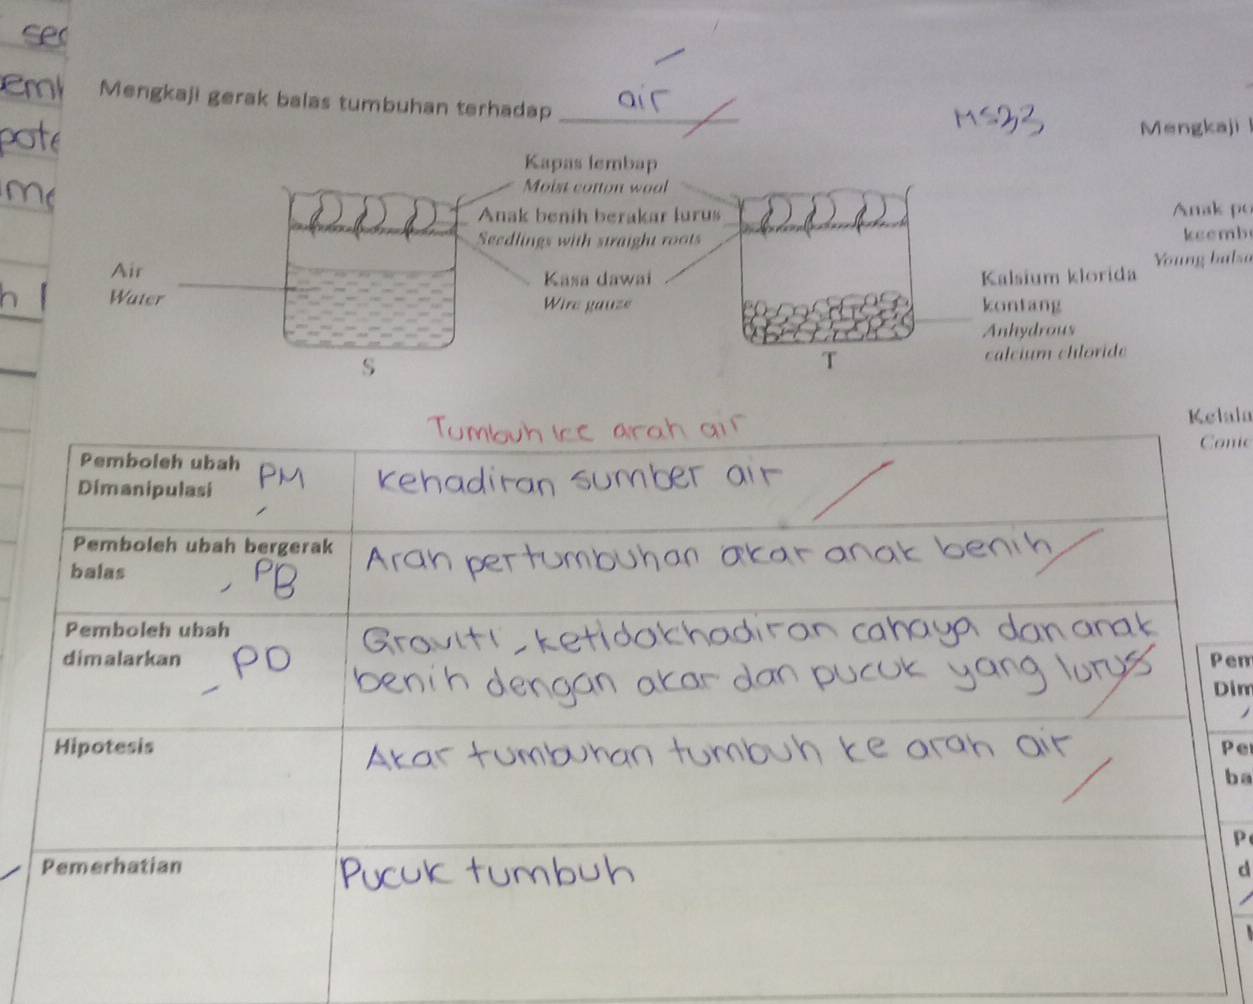 Mengkaji gerak balas tumbuhan terhadap air
Mengkaji
Kapas lembap
Moist cotton wool
Anak benih berakar lurus
Seedlings with straight roots
Kasa dawai
Wire gauze
Air
Water
Kalsium klorida
kontang
Anhydrous
calcium chloride
S
T
Anak
Young
Tumbuh ke arah air
Pemboleh ubah
Dimanipulasi
PM
Kehadiran sumber air
Pemboleh ubah bergerak
balas
PB
Arah pertumbuhan akar anak benih
Pemboleh ubah
dimalarkan
PD
Graviti, ketidakhadiran cahaya dan anak
benih dengan akar dan pucuk yang lurus
Hipotesis
Akar tumbuhan tumbuh ke arah air
Pemerhatian
Pucuk tumbuh